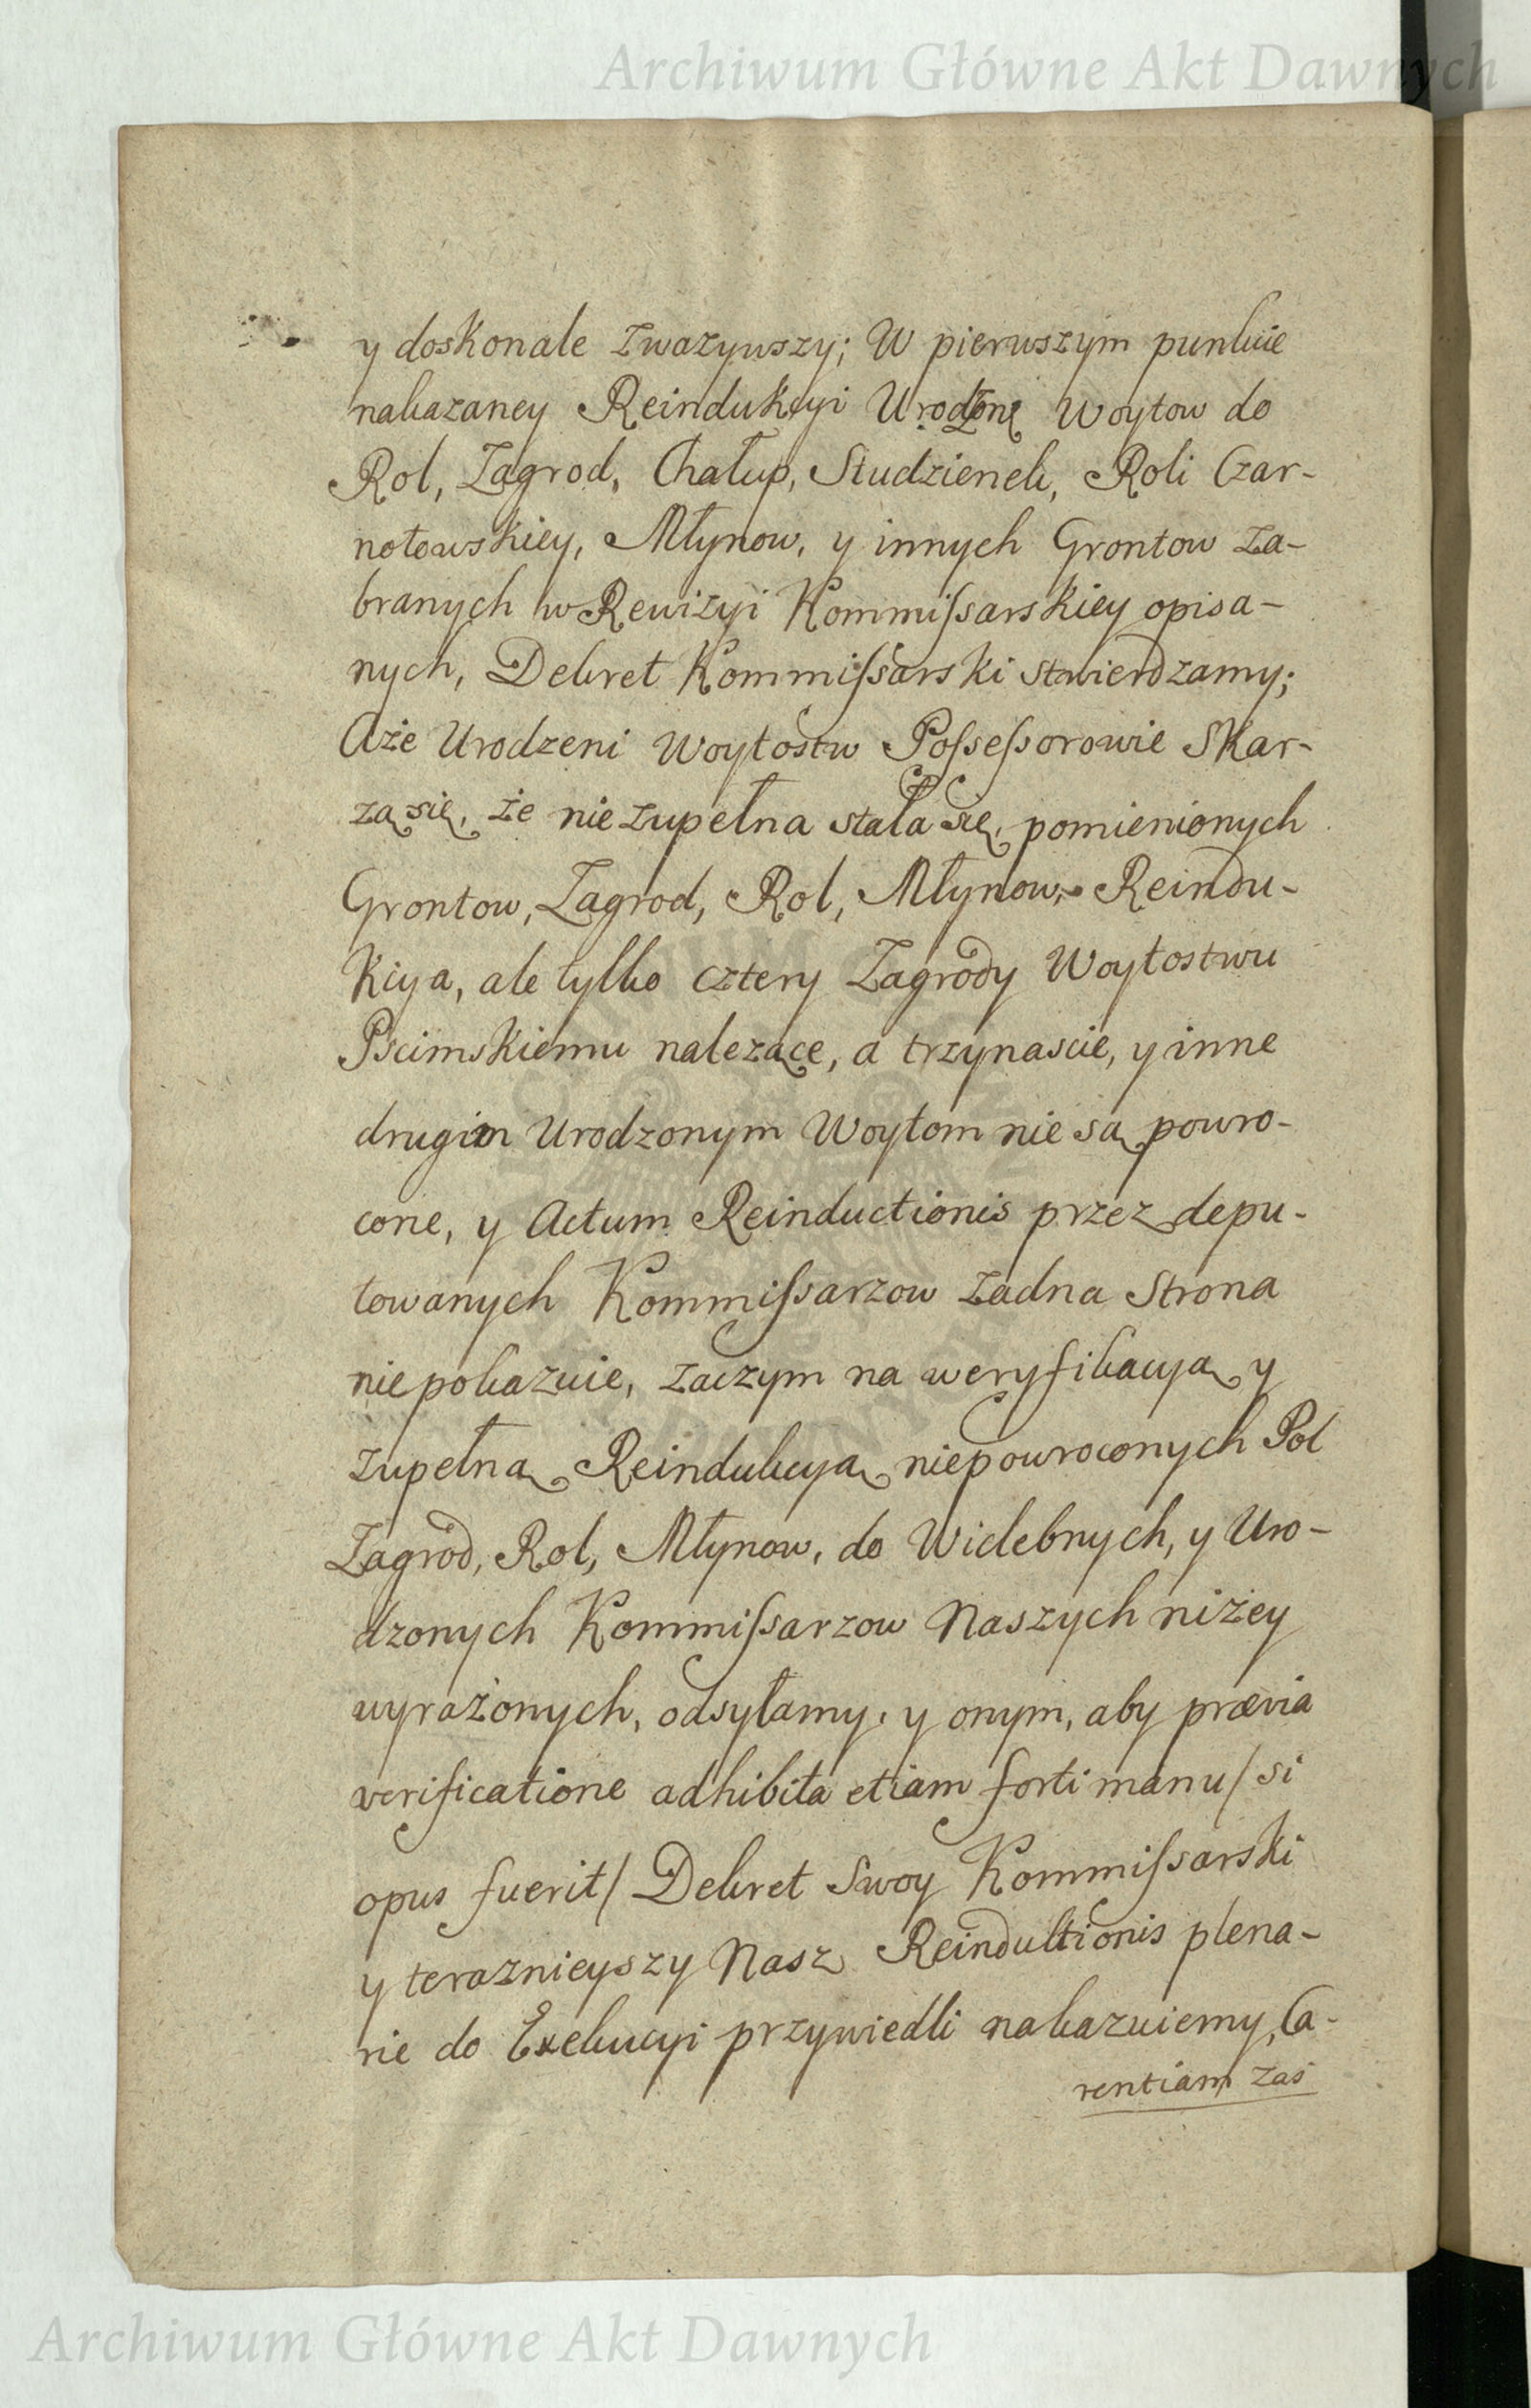 Archiwum Główne Akt Dawnych
y doskonale zwazywszy; W pierwszym punkcie
nakazaney Reindukcyi Woytow do
Rol, Zagrod, Chałup, Studzienek, Roli Czar-
notowskiey, Młynow, y innych Grontow za-
branych w Rewizyi Kommiſsarskiey opisa-
nych, Dekret Kommiſsarski stwierdzamy;
Aże Urodzeni Woytostw Poſseſsorowie Skar-
zą się, że nie zupełna stała się, pomienionych
Grontow, Zagrod, Rol, Młynow, Reindu-
kcya, ale tylko cztery Zagrody Woytostwu
Pscimskiemu nalezące, a trzynascie, y inne
drugim Urodzonym Woytom nie są powro-
cone, y Actum Reinductionis przez depu-
towanych Kommiſsarzow zadna Strona
niepokazuie, zaczym na weryfikacyą y
zupełną Reindukcyą niepowroconych Pol
Zagrod, Rol, Młynow, do Wielebnych, y Uro-
dzonych Kommiſsarzow Naszych niżey
wyrażonych, odsyłamy, y onym, aby prævia
verificatione adhibita etiam forti manu/ si
opus fuerit/ Dekret Swoy Kommiſsarski
y teraznieyszy Nasz Reinductionis plena-
rie do Exekucyi przywiedli nakazuiemy, Ca-
rentiam zaś
Archiwum Główne Akt Dawnych